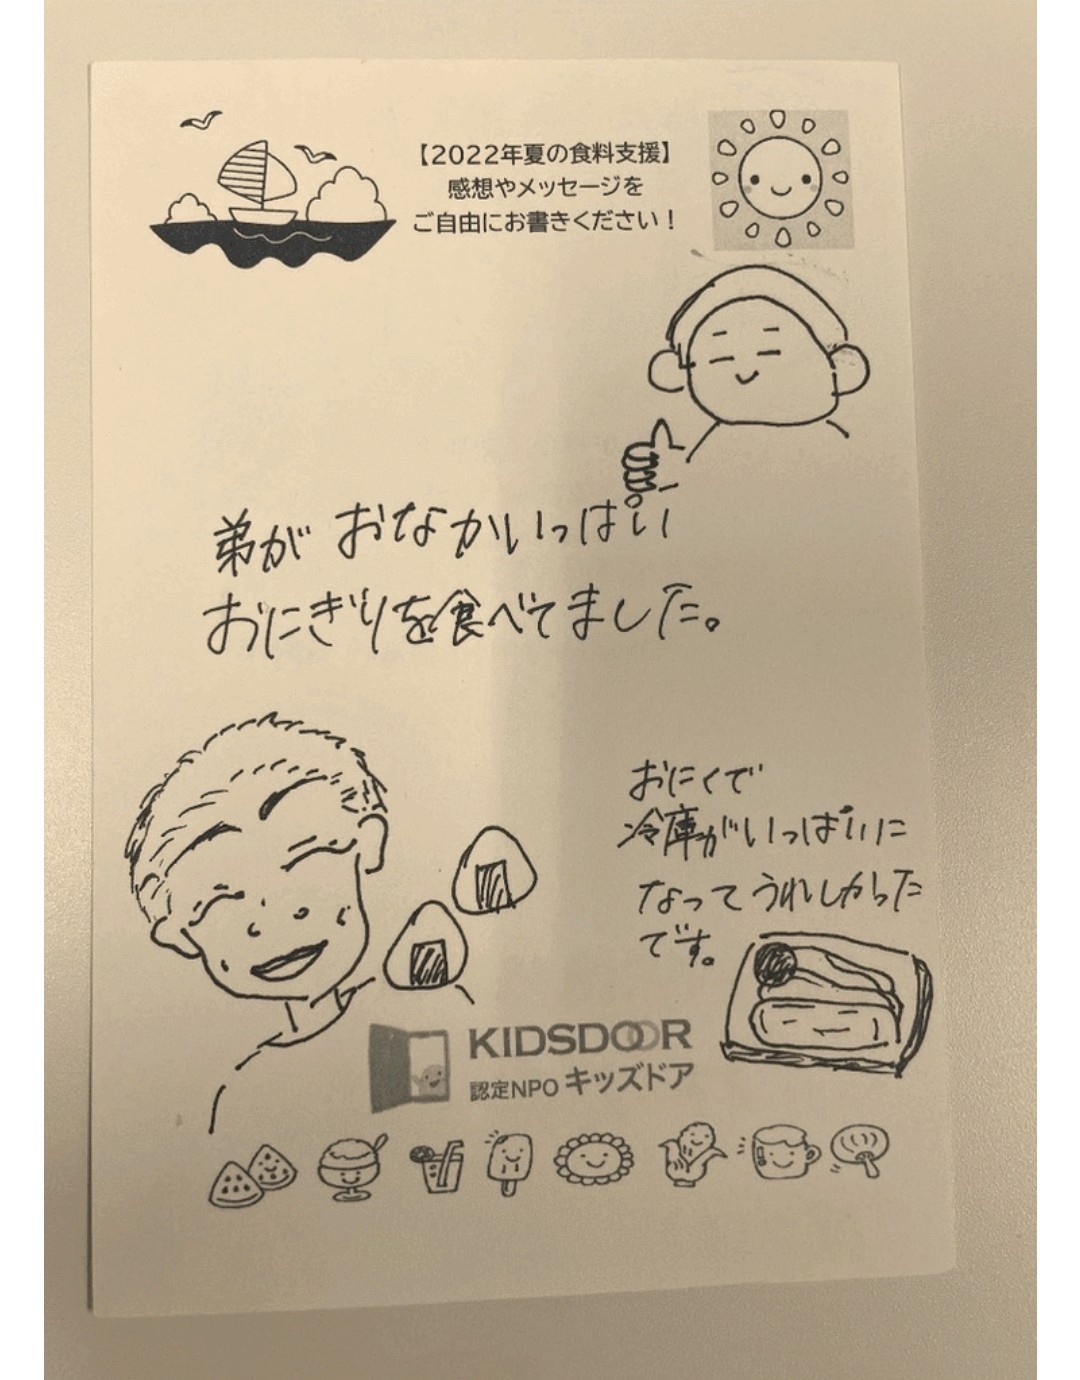 【2022年夏の食料支援】
感想やメッセージを
ご自由にお書きください！
弟がおなかいっぱい
おにぎりを食べてました。
おにくで
冷庫がいっぱいに
なってうれしかった
です。
KIDSDOOR
認定NPO キッズドア